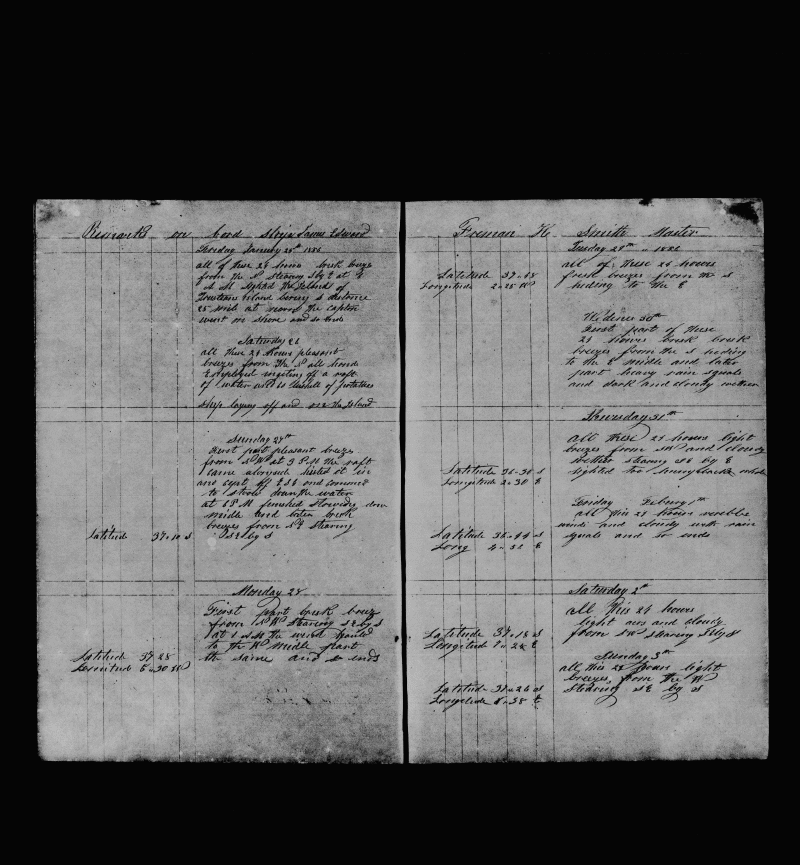 Remarks on bord Ship James Edward
Friday January 25th 1856
all of these 24 hours brisk breeze
from the S Stearing S by E at 4
A M sighted the Islands of
Island bearing S distance
25 mile at noon the captin
went on shore and so ends
Saturday 26
all these 24 hours pleasant
breezes from the S all hands
Employed geting of a raft
of water and of potatoes
ship laying off and on the Island
Sunday 27th
First part pleasant breeze
from N W at 3 P M the raft
came alongside histed it in
and cept off E S E and comenced
to stow down the water
at 6 P M finished stowing down
midle and later brisk
breezes from N E stearing
S E by S
Latitude 37-10 S
Monday 28
First part brisk breez
from N W stearing S E by S
at the wind hauled
to the W midle part
the same and so ends
Latitude 37-28
Longitude 5-30 W
Freman H Smith Master
Tuesday 29th 1856
all of these 24 hours
fresh brezes from the S
heding to the E
Latitude 37-48
Longitude 2-25 W
Wedensday 30th
First part of these
24 hours brisk brisk
breezes from the S heding
to the E midle and later
part heavy rain squals
and dark and cloudy wether
Thursday 31st
all these 24 hours light
brezes from SW and cloudy
wether stearing SE by E
sighted too whale
Latitude 36-30 S
Longitude 2-30 E
Friday Febuary 1st
all this 24 hours verebles
winds and cloudy with rain
squals and so ends
Latitude 36-44 S
Long 4-52 E
Saturday 2d
all this 24 hours
light airs and cloudy
from SW stearing
Latitude 37-18 S
Longitude E
Sunday 3th
all this 24 hours light
brezes from the W
stearing SE by S
Latitude 37-26 S
Longitude 8-38 E